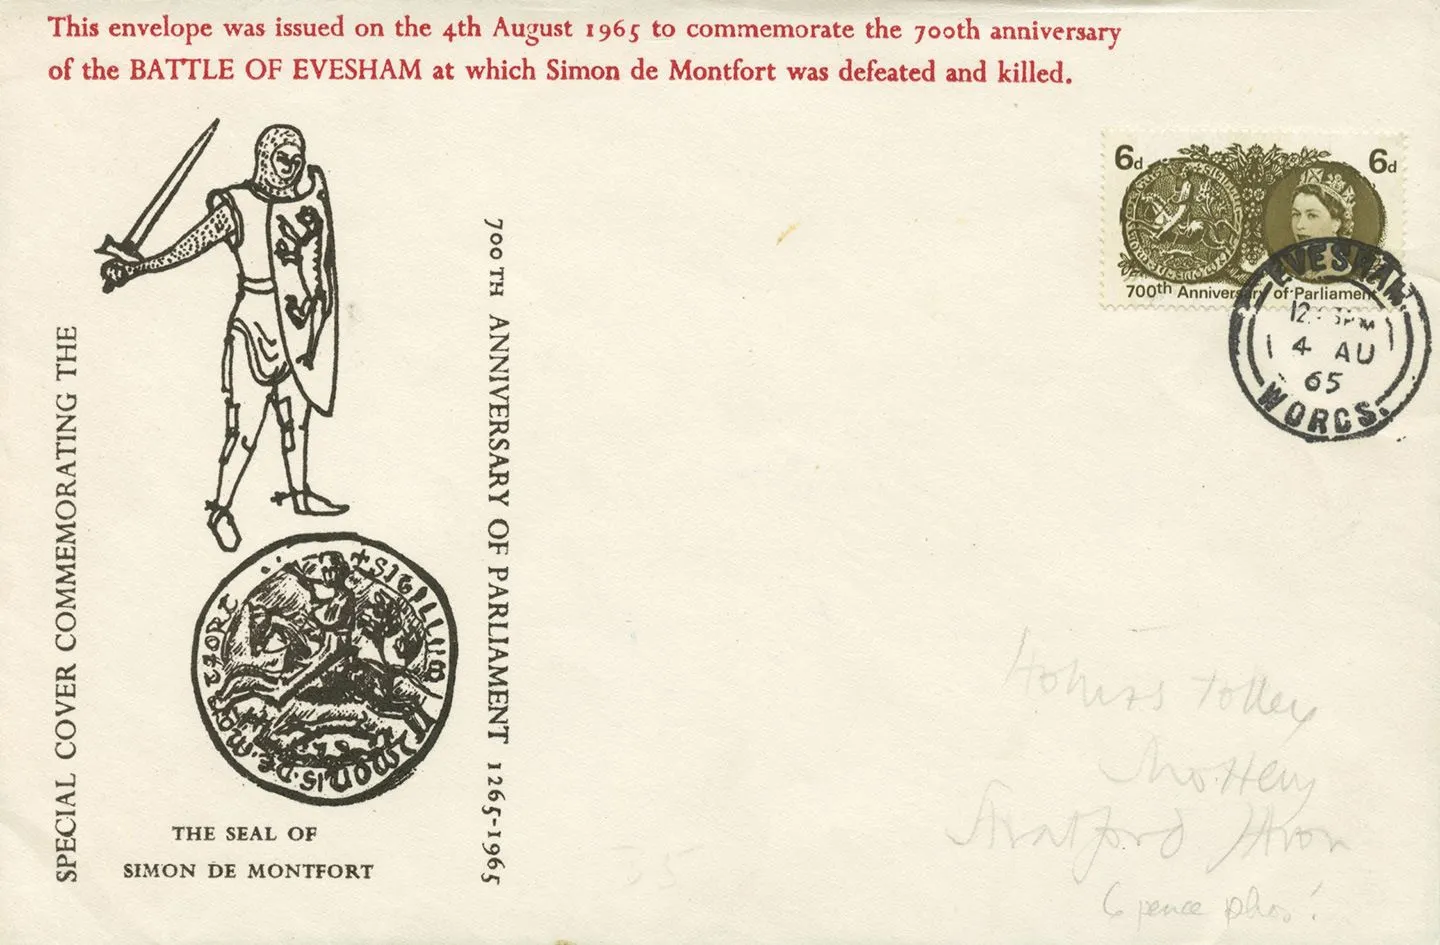 This envelope was issued on the 4th August 1965 to commemorate the 700th anniversary
of the BATTLE OF EVESHAM at which Simon de Montfort was defeated and killed.
SPECIAL COVER COMMEMORATING THE
700TH ANNIVERSARY OF PARLIAMENT 1265-1965
SIGILLUM SIMONIS DE
THE SEAL OF
SIMON DE MONTFORT
6d 6d
700th Anniversary of Parliament
EVESHAM
4 AU
65
WORCS.
Stratford Avon
6 pence phos!